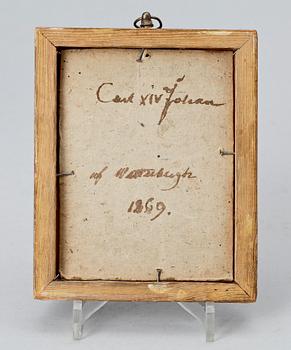 Carl XIV Johan
af
1869.